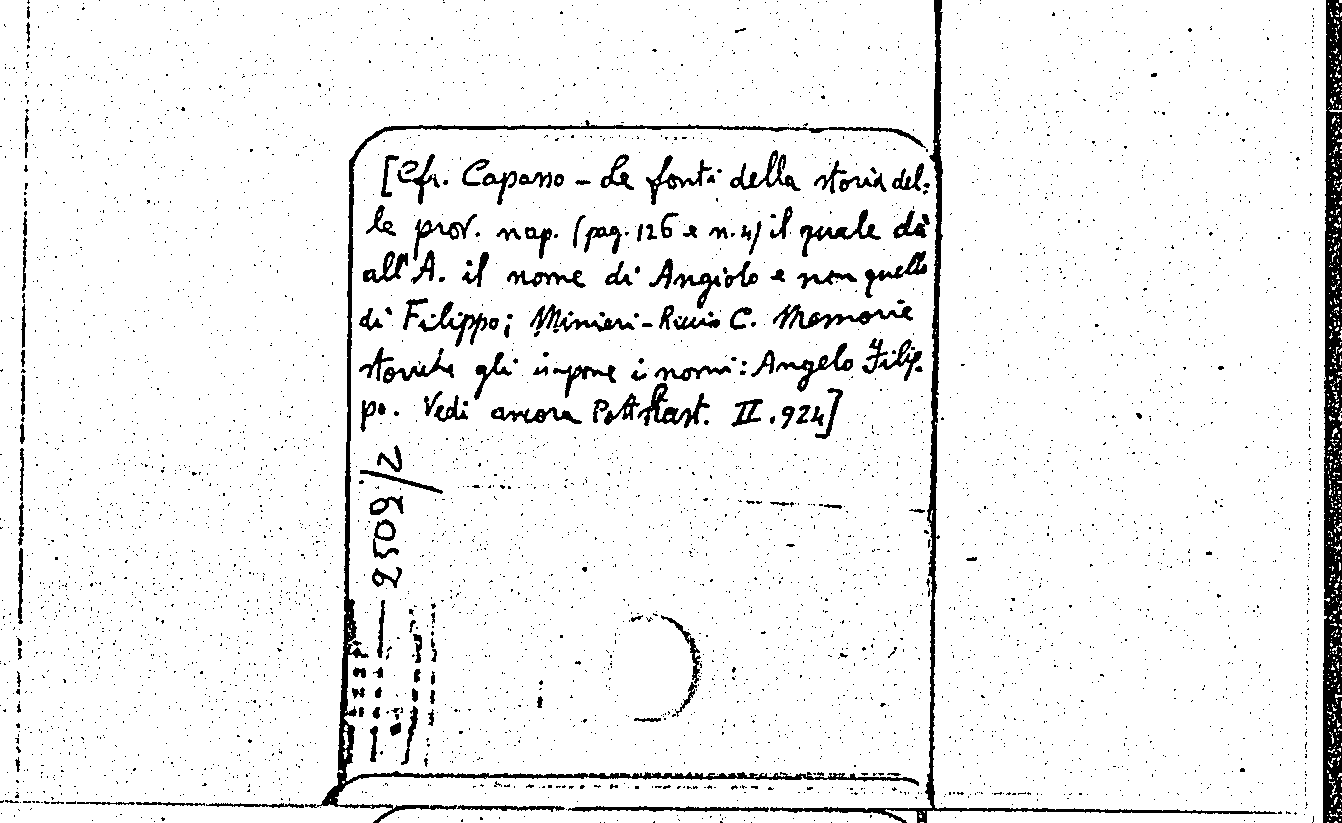 [Cfr. Capasso - Le fonti della storia del-
le prov. nap. (pag. 126 e n. 4) il quale dà
all'A. il nome di Angiolo e non quello
di Filippo; Minieri-Riccio C. Memorie
storiche gli impone i nomi: Angelo Filip-
po. Vedi ancora Potthast. II. 924]
2509/2